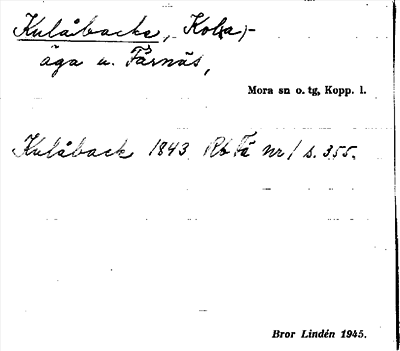 Kulåbacks, Kol(a)-
äga u. Färnäs,
Mora sn o. tg, Kopp. l.
Kulåback 1843 Rb Fä nr 1 s. 355.
Bror Lindén 1945.